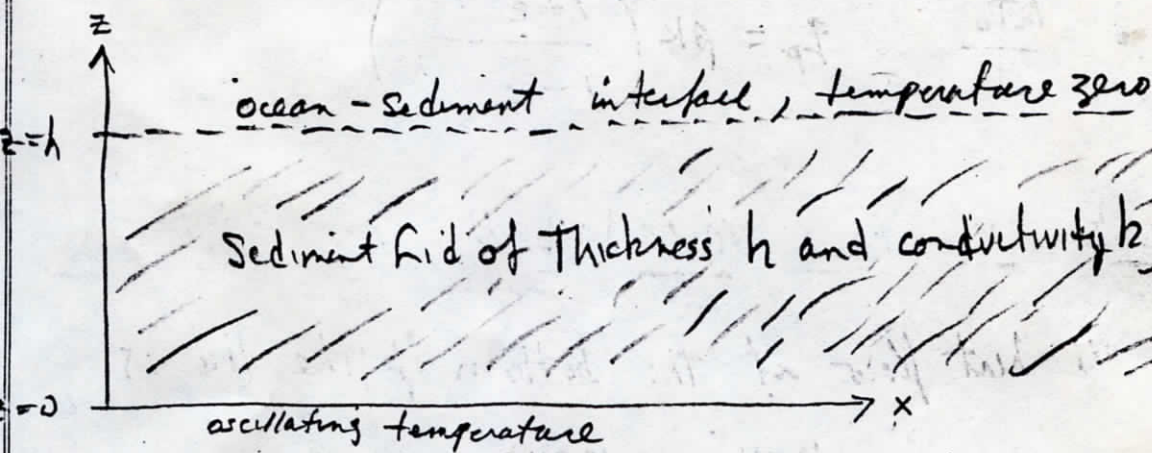 z
ocean - sediment interface, temperature zero
z=h
Sediment Lid of Thickness h and conductivity k
z=0
x
oscillating temperature